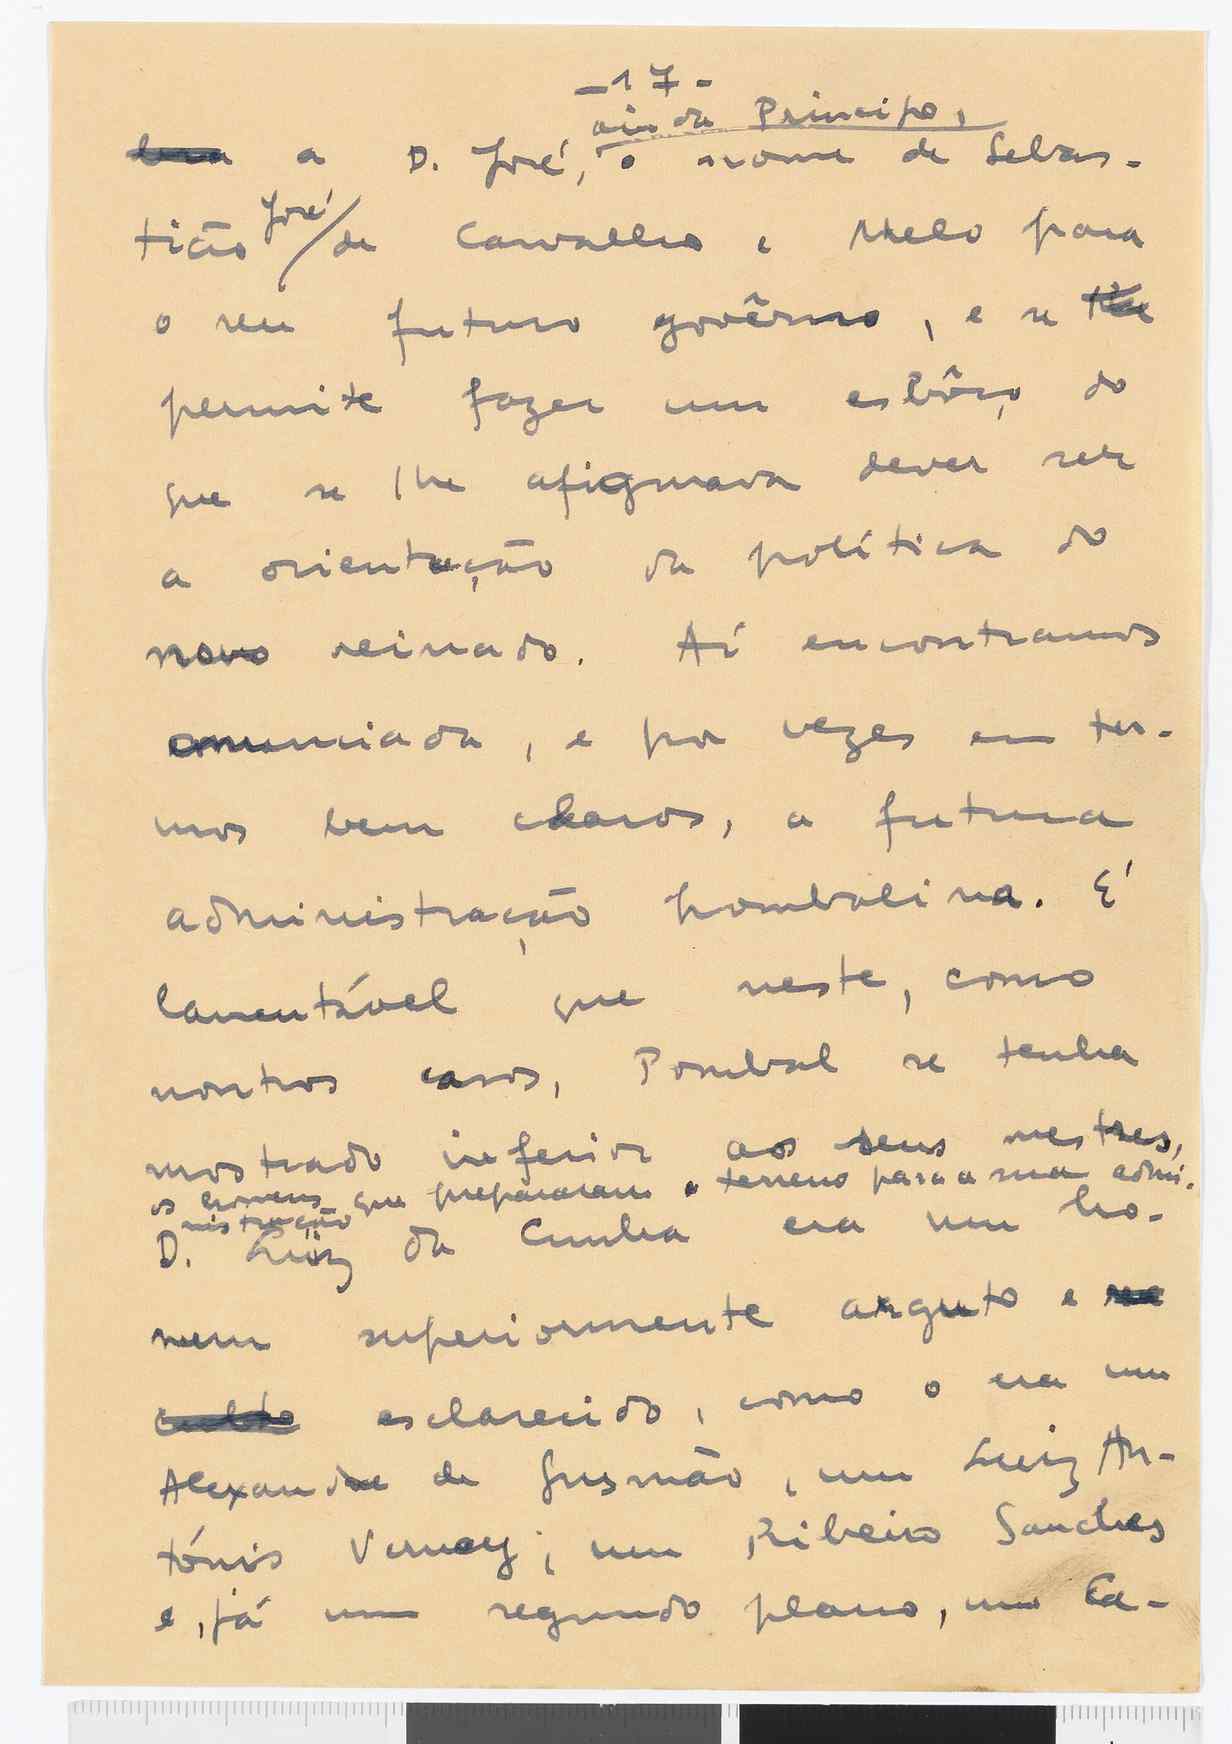 -17-
ainda Principe,
a D. José, o nome de Sebas-
tião José de Carvalho e Melo para
o seu futuro govêrno, e se lhe
permite fazer um esbôço do
que se lhe afigurava dever ser
a orientação da política do
novo reinado. Aí encontramos
anunciada, e por vezes em ter-
mos bem claros, a futura
administração pombalina. É
lamentável que neste, como
noutros casos, Pombal se tenha
mostrado inferior aos seus mestres,
os homens que prepararam o terreno para a sua admi-
nistração
D. Luiz da Cunha era um ho-
mem superiormente arguto e
culto esclarecido, como o era um
Alexandre de Gusmão, um Luiz An-
tónio Verney, um Ribeiro Sanches
e, já num segundo plano, um Ca-